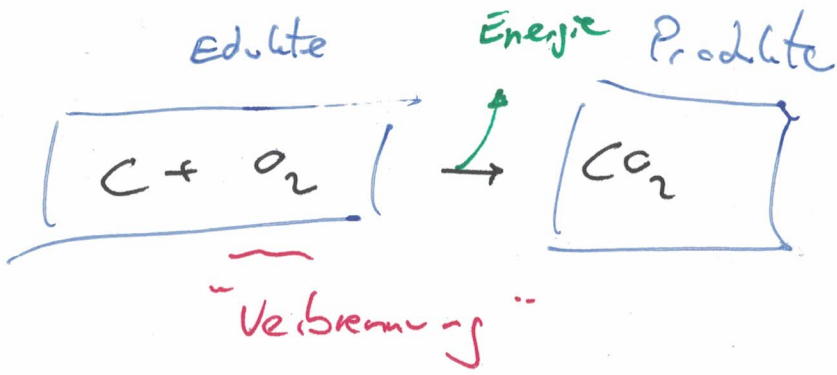 Edukte Energie Produkte
C + O2 → CO2
"Verbrennung"